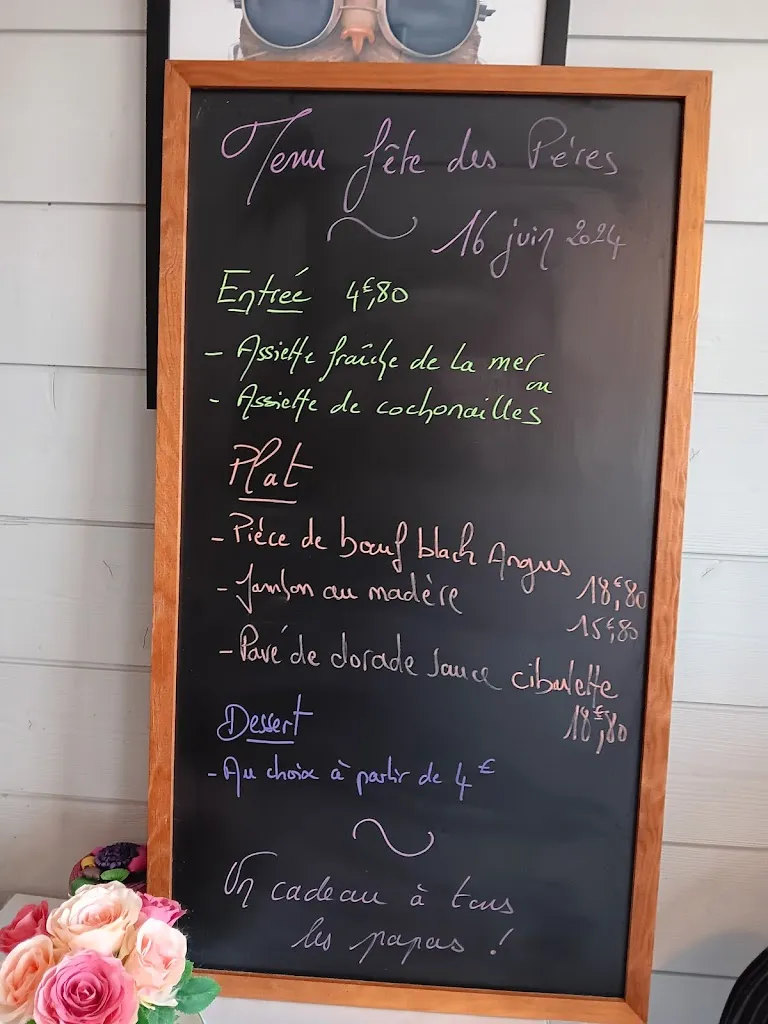 Menu fête des Pères
16 juin 2024
Entrée 4€,80
- Assiette fraîche de la mer
ou
- Assiette de cochonailles
Plat
- Pièce de bœuf black Angus
18€,80
- Jambon au madère
15€,80
- Pavé de dorade sauce ciboulette
18€,80
Dessert
- Au choix à partir de 4€
Un cadeau à tous
les papas !